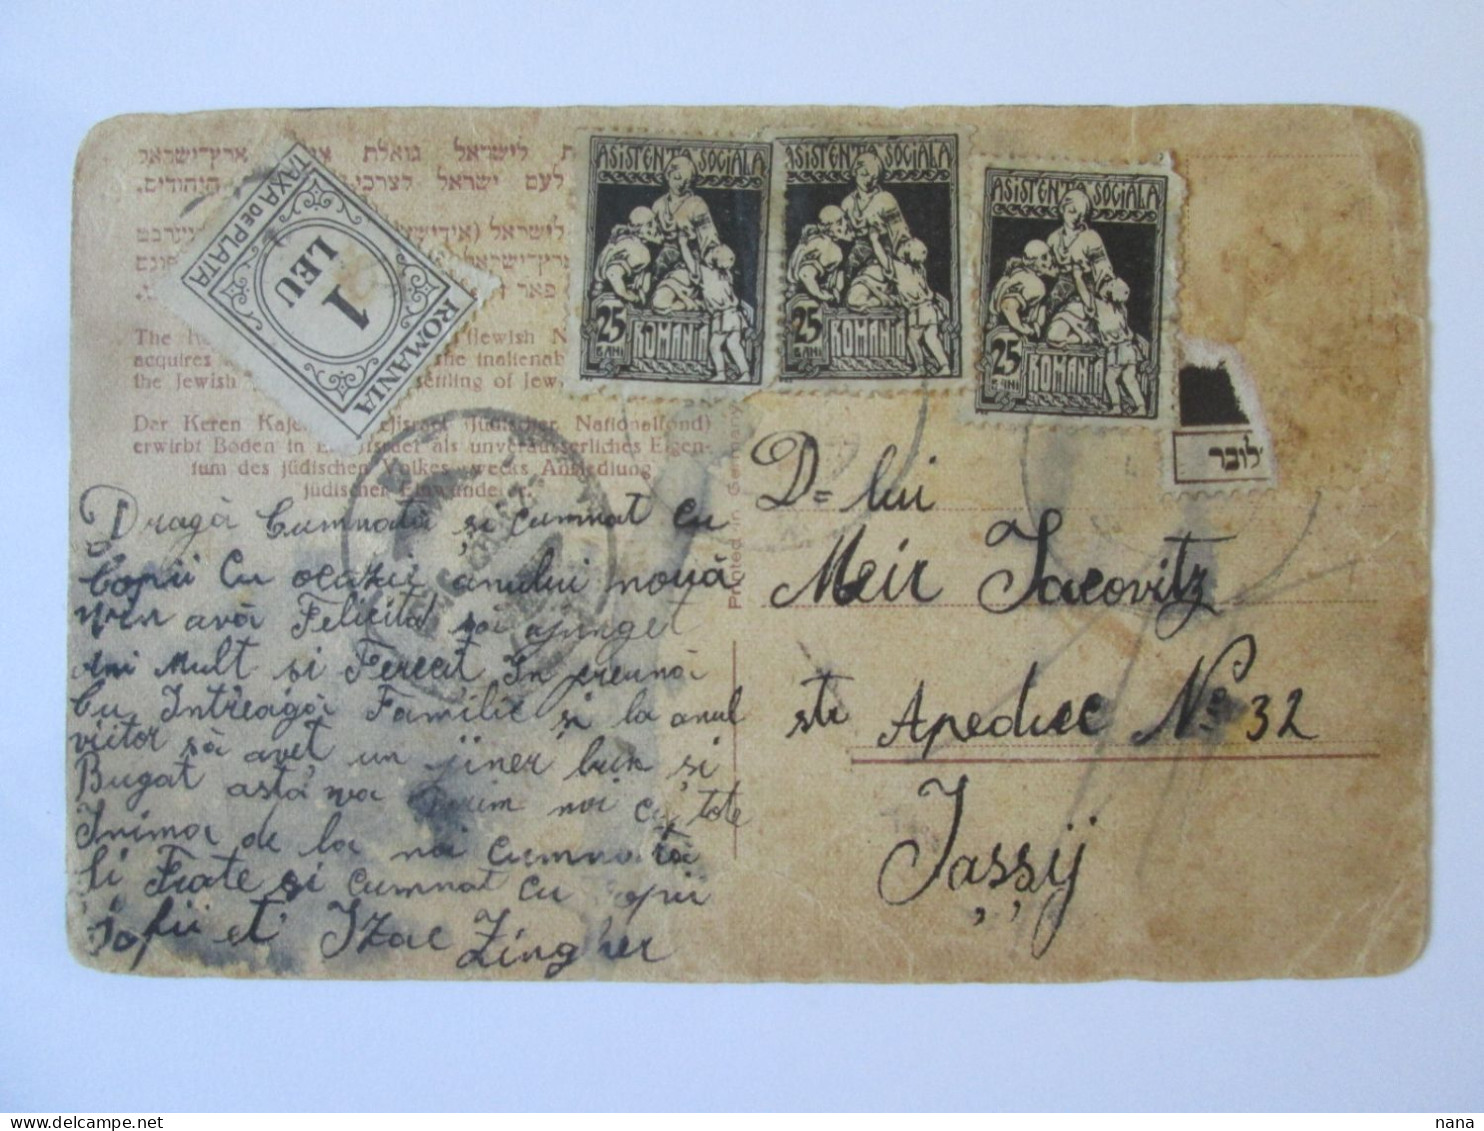 לישראל גואלת ארץ־ישראל
לעם ישראל לצרכי היהודים.
לישראל
ארץ־ישראל
פאר
The (Jewish N
acquires the inalienab
the Jewish settling of Jew
Der Keren Kaje (Jüdischer Nationalfond)
erwirbt Boden in als unveräusserliches Eigen-
tum des jüdischen Volkes zwecks Ansiedlung
jüdischer Einwanderer.
ROMANIA
1
LEU
TAXA DE PLATA
ASISTENTA SOCIALA
25
BANI
ROMANIA
ASISTENTA SOCIALA
25
BANI
ROMANIA
ASISTENTA SOCIALA
25
BANI
ROMANIA
Printed in Germany
Dragă Cumnată și cumnat cu
Copii Cu ocazii anului nouă
vren avă Felicita să ajunget
Ani Mult si Ferecit In preună
Cu Intreagă Familie și la anul
viitor să avet un jiner bun și
Bugat asta va Dorim noi cu tote
Inima de la noi cumnată
Ii Frate și cumnat cu copii
Sofii et Izac Zingher
D= lui
Meir Iacovitz
str Apeduc No 32
Iașșij
nana